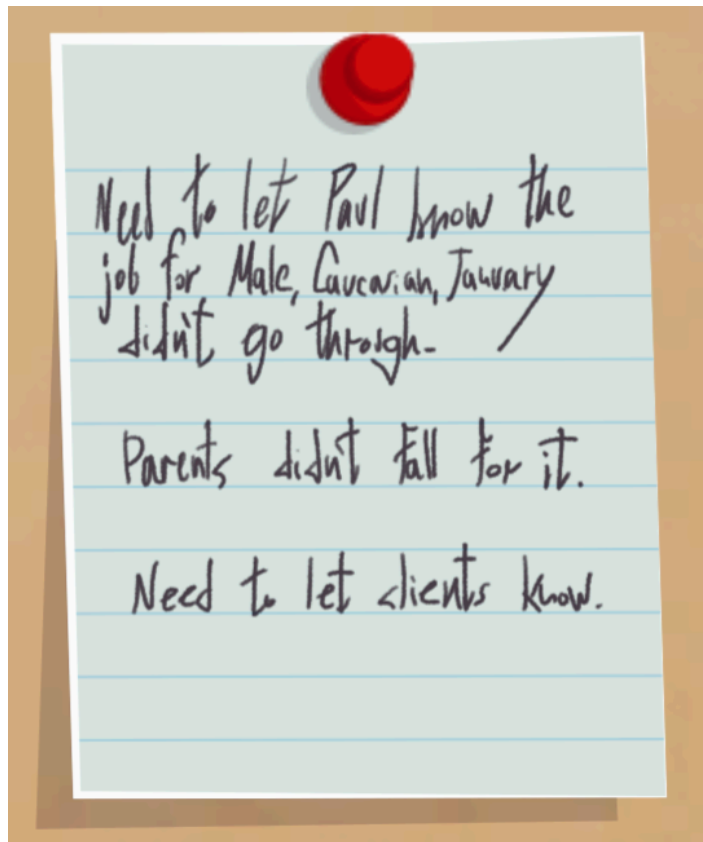 Need to let Paul know the
job for Male, Caucasian, January
didn't go through.
Parents didn't fall for it.
Need to let clients know.